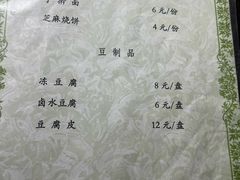 面 6元/份
芝麻烧饼 4元/份
豆制品
冻豆腐 8元/盘
卤水豆腐 6元/盘
豆腐皮 12元/盘